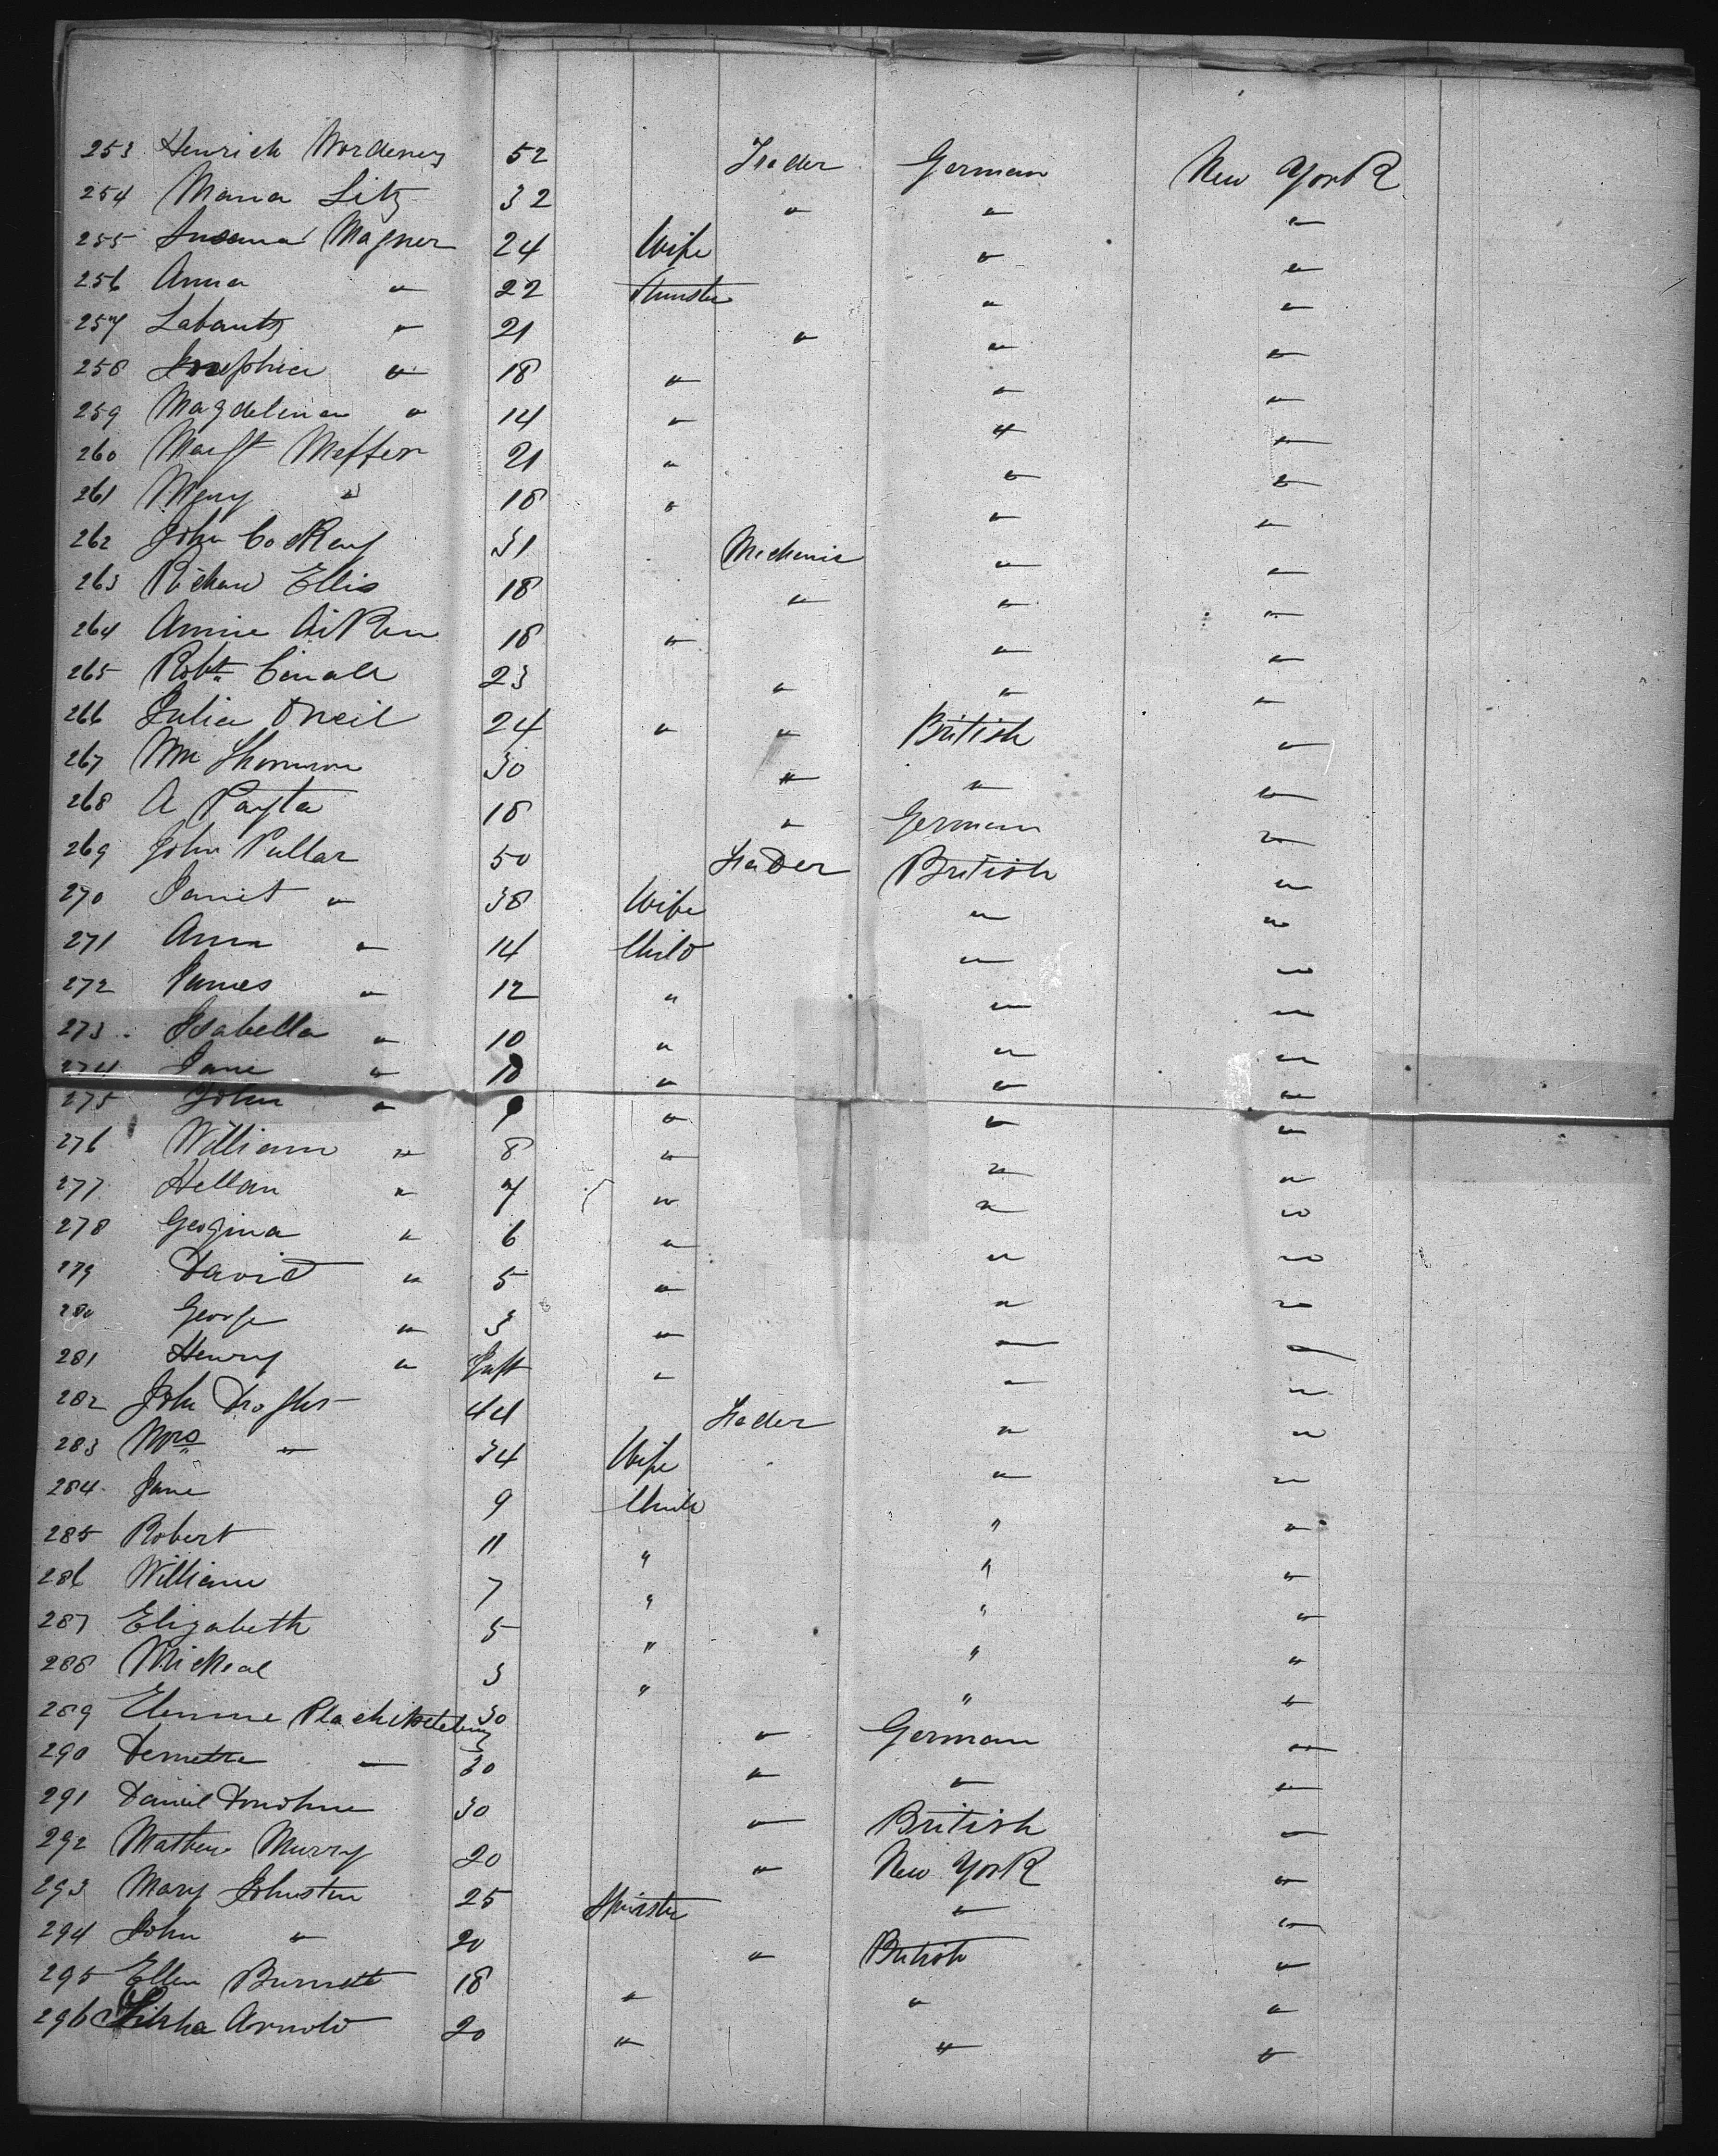 253 Henrich Nordeney 52 Trader German New York
254 Maria Litz 32 " " "
255 Susana Magner 24 Wife " "
256 Anna " 22 " "
257 Labantz " 21 " " "
258 Josephia " 18 " " "
259 Magdelina " 14 " " "
260 Meffer 21 " " "
261 Mary " 18 " " "
262 John Cockery 31 Mechanic " "
263 Richard Ellis 18 " " "
264 Annie Aitken 18 " " "
265 Robt 23 " " "
266 Julia Oneil 24 " " British "
267 Wm 30 " " "
268 A Payta 18 " German "
269 John Pullar 50 Trader British "
270 Janet " 38 Wife " "
271 Ann " 14 Child " "
272 James " 12 " " "
273 Isabella " 10 " " "
274 Jane " 10 " " "
275 John " 9 " " "
276 William " 8 " " "
277 Hellan " 7 " " "
278 Geogina " 6 " " "
279 David " 5 " " "
280 George " 3 " " "
281 Henry " Inft " " "
282 John 44 Trader " "
283 Mrs " 34 Wife " "
284 Jane 9 Child " "
285 Robert 11 " " "
286 William 7 " " "
287 Elizabeth 5 " " "
288 Mickeal 3 " " "
289 30 " German "
290 30 " " "
291 Daniel Donohue 30 " British "
292 Mathew Murry 20 " New York "
293 Mary Johnston 25 Spinster " "
294 John " 20 " British "
295 Ellen Burnett 18 " " "
296 Arnold 20 " " "